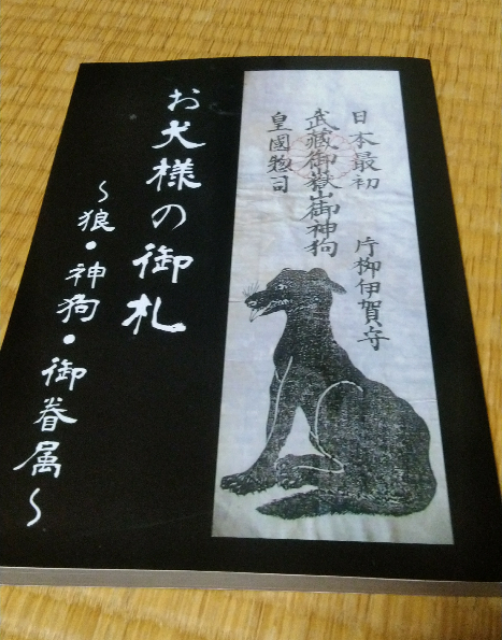 お犬様の御札
～狼・神狗・御眷属～
日本最初 片柳伊賀守
武蔵御嶽山御神狗
皇國惣司